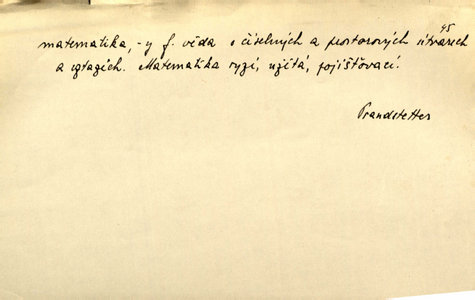 45
matematika, -y f. věda o číselných a prostorových útvarech
a vztazích. Matematika ryzí, užitá, pojišťovací.
Brandstetter